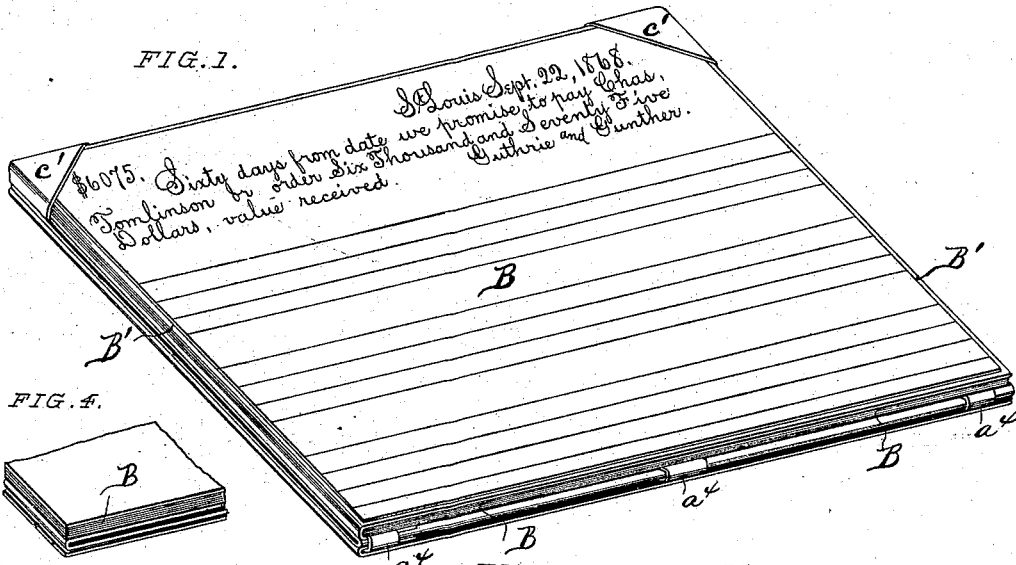 FIG.1.
c'
St Louis Sept. 22, 1868.
$6075. Sixty days from date we promise to pay Chas.
Tomlinson or order Six Thousand and Seventy Five
Dollars, value received. Guthrie and Gunther.
c'
B
B'
B'
FIG.4.
B
a4
B
a4
B
a4